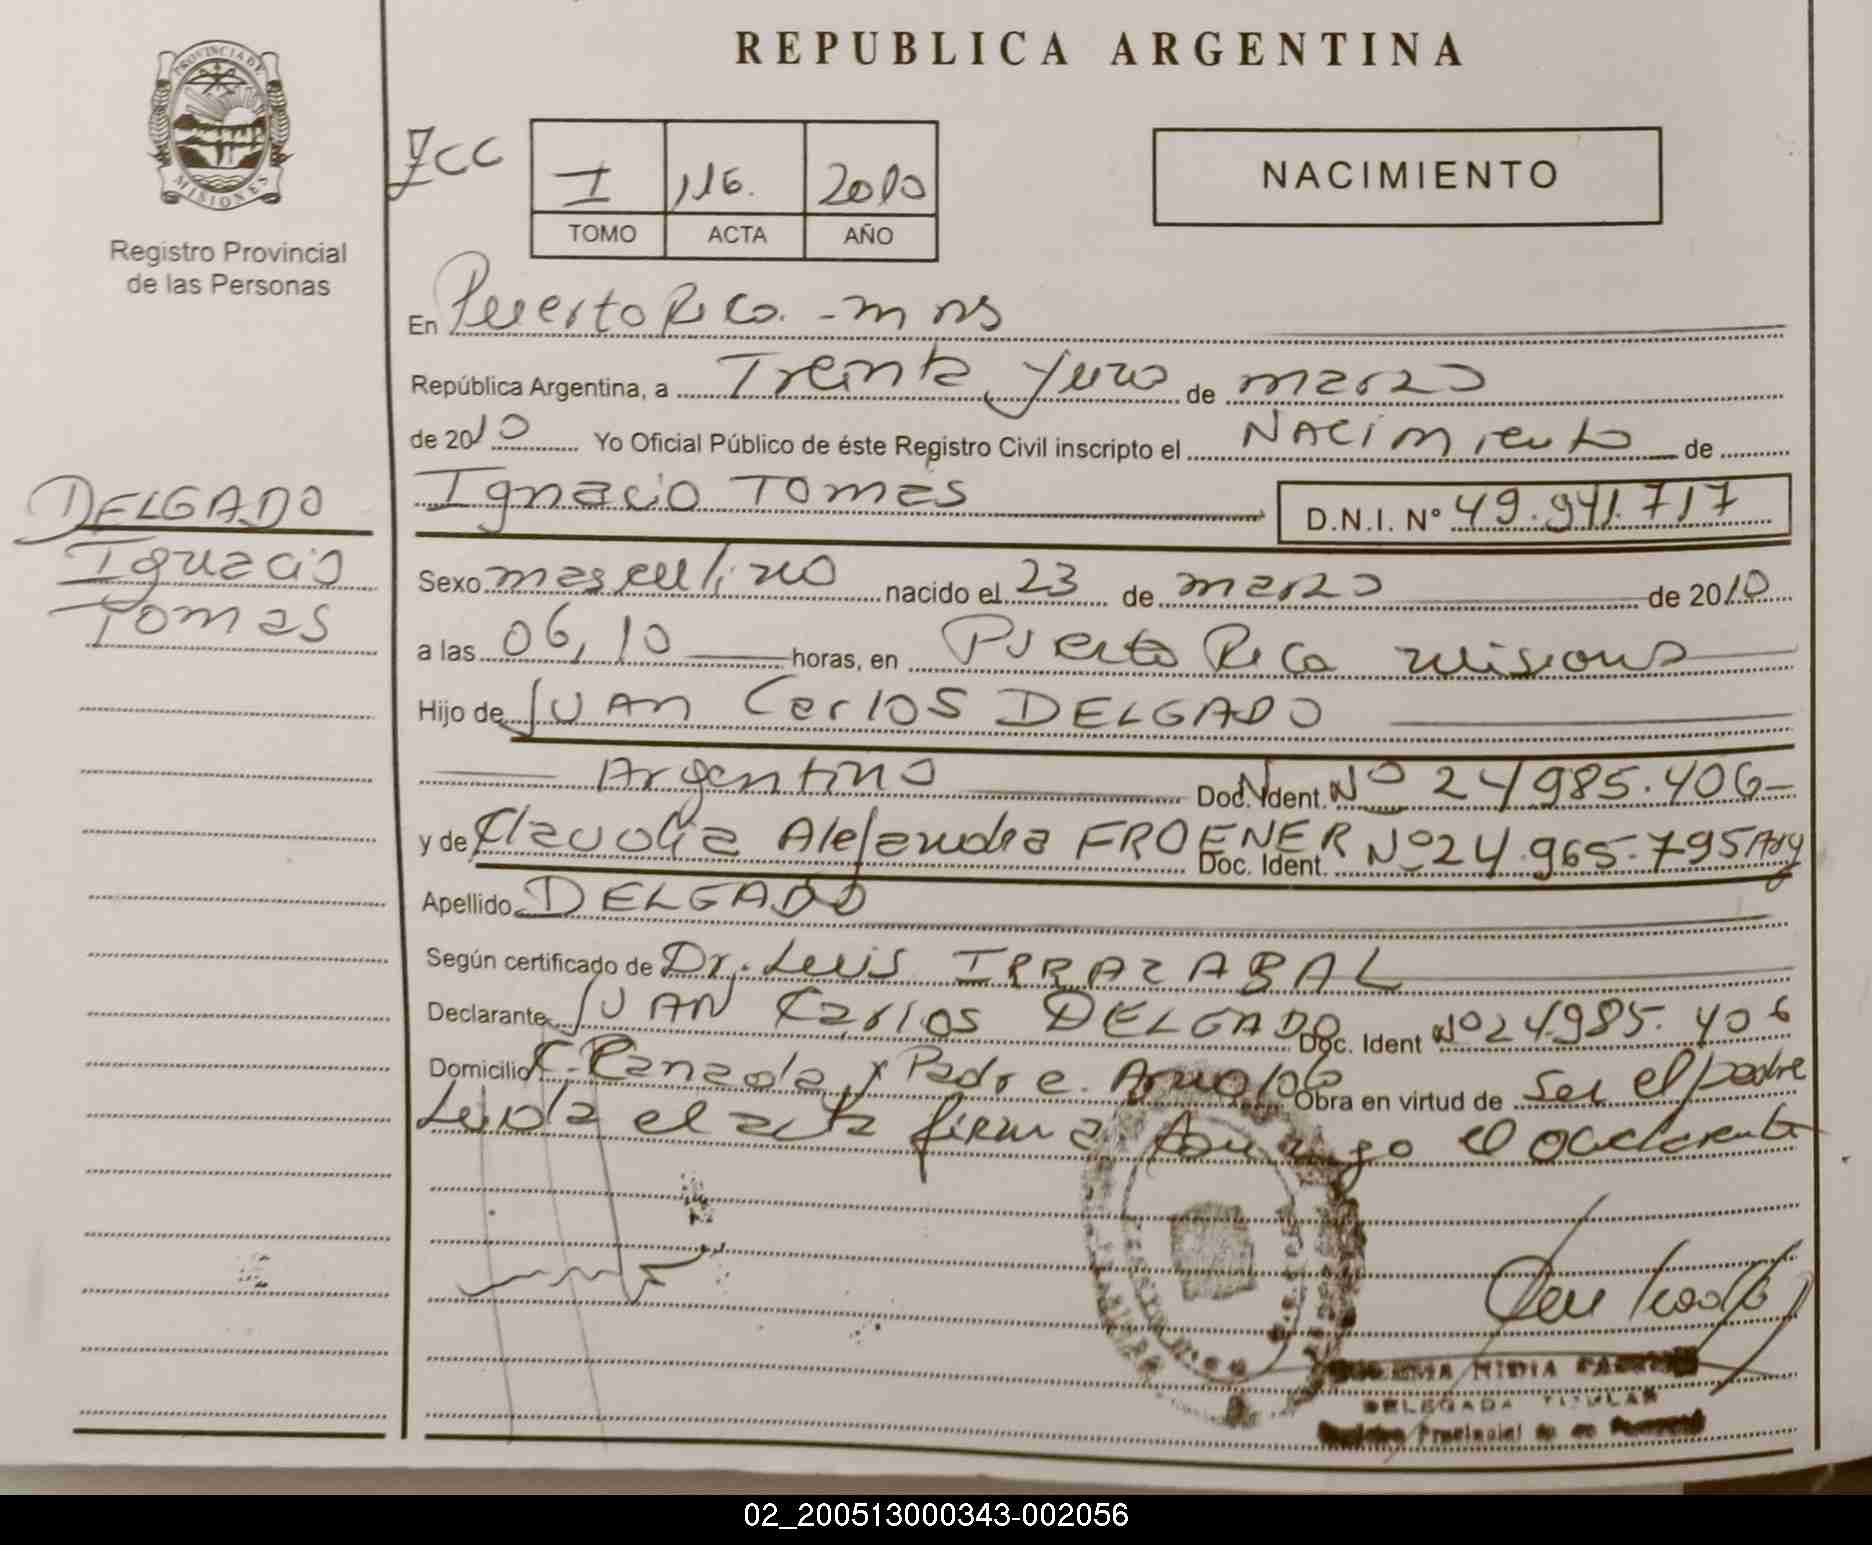 REPUBLICA ARGENTINA
PROVINCIA DE
MISIONES
Registro Provincial
de las Personas
I 116. 2010
TOMO ACTA AÑO
NACIMIENTO
En Puerto Rico - mns
República Argentina, a Treinta y uno de marzo
de 2010 Yo Oficial Público de éste Registro Civil inscripto el Nacimiento de
Ignacio Tomas D.N.I. N° 49.941.717
DELGADO
Ignacio
Tomas
Sexo masculino nacido el 23 de marzo de 2010
a las 06,10 horas, en Puerto Rico misiones
Hijo de JUAN Carlos DELGADO
Argentino Doc. Ident. N° 24985.406-
y de Claudia Alejandra FROENER Doc. Ident. N° 24.965.795 Arg
Apellido DELGADO
Según certificado de Dr. Luis IRRAZABAL
Declarante JUAN Carlos DELGADO Doc. Ident N° 24985.406
Domicilio Padre Arnoldo Obra en virtud de ser el padre
Leida el acta firma conmigo el declarante
NIDIA
DELEGADA TITULAR
Provincial de las
02_200513000343-002056